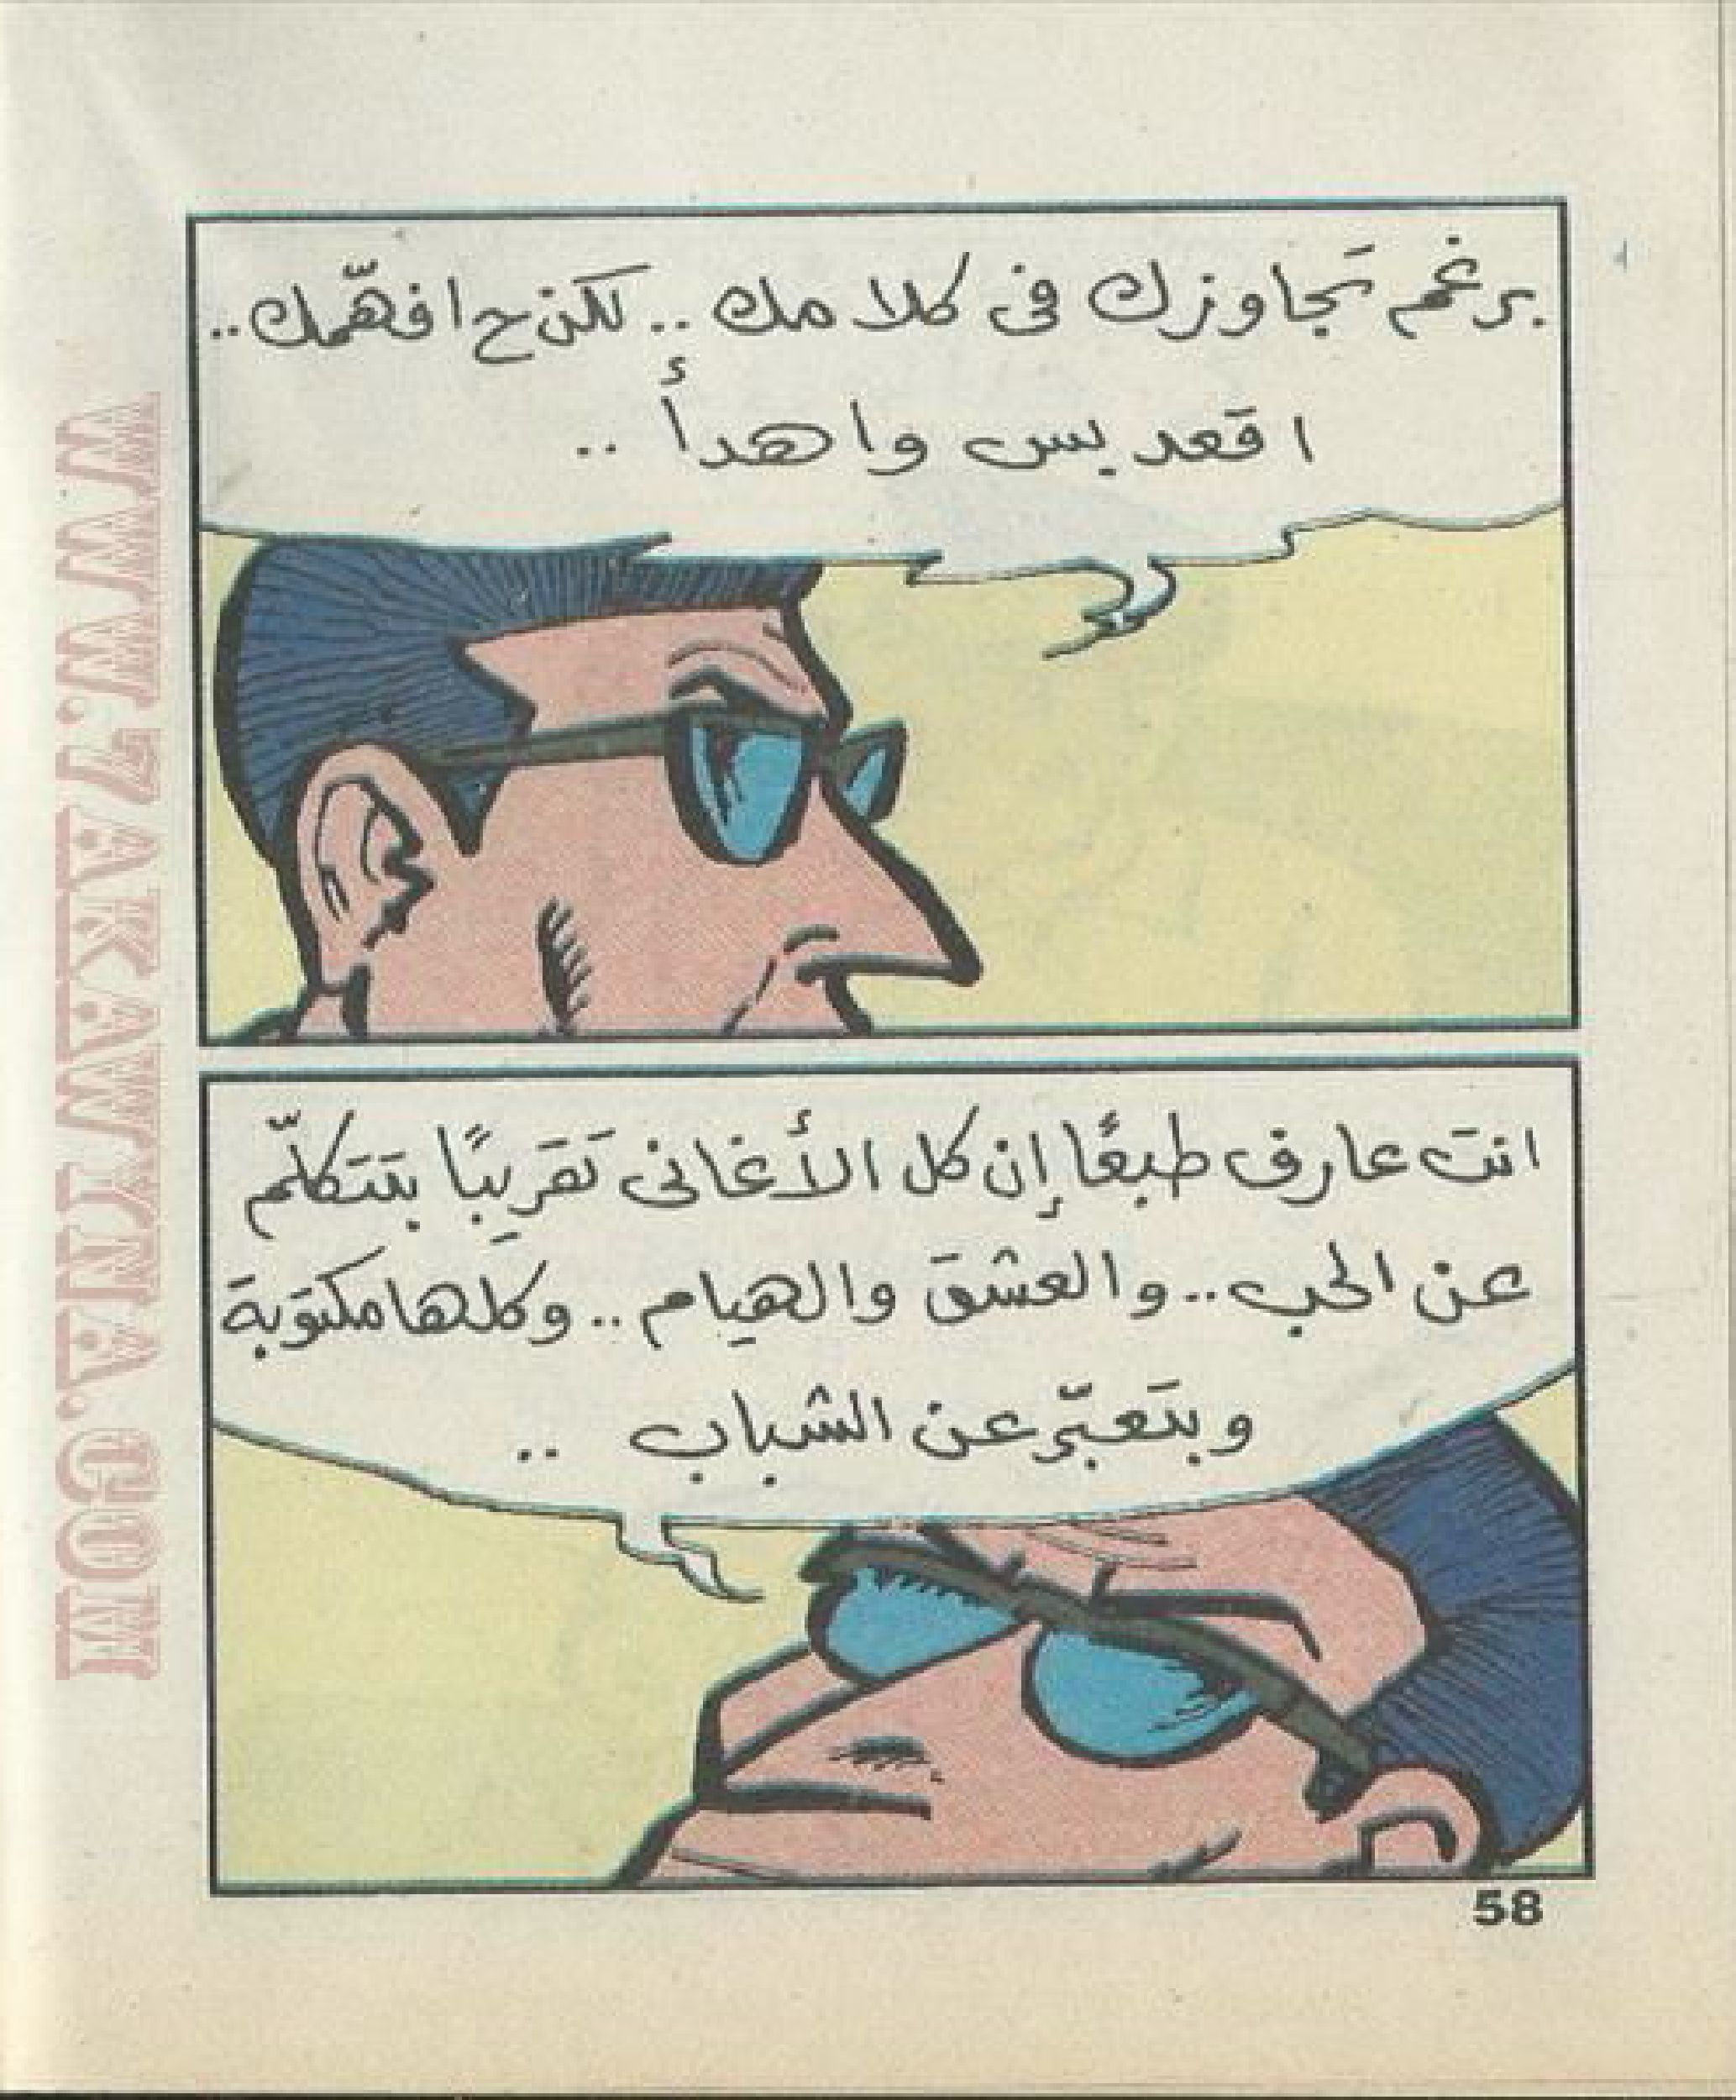 برغم تَجاوزك فى كلامك .. لكن ح افهّمك ..
اقعد بس واهدأ ..
انتَ عارف طبعًا إن كل الأغانى تَقريِبًا بتتَكلّم
عن الحب .. والعشقَ والهيام .. وكلها مكتوَبةَ
وبتَعبّر عن الشباب ..
58
WWW.7AKAWTNA.COM